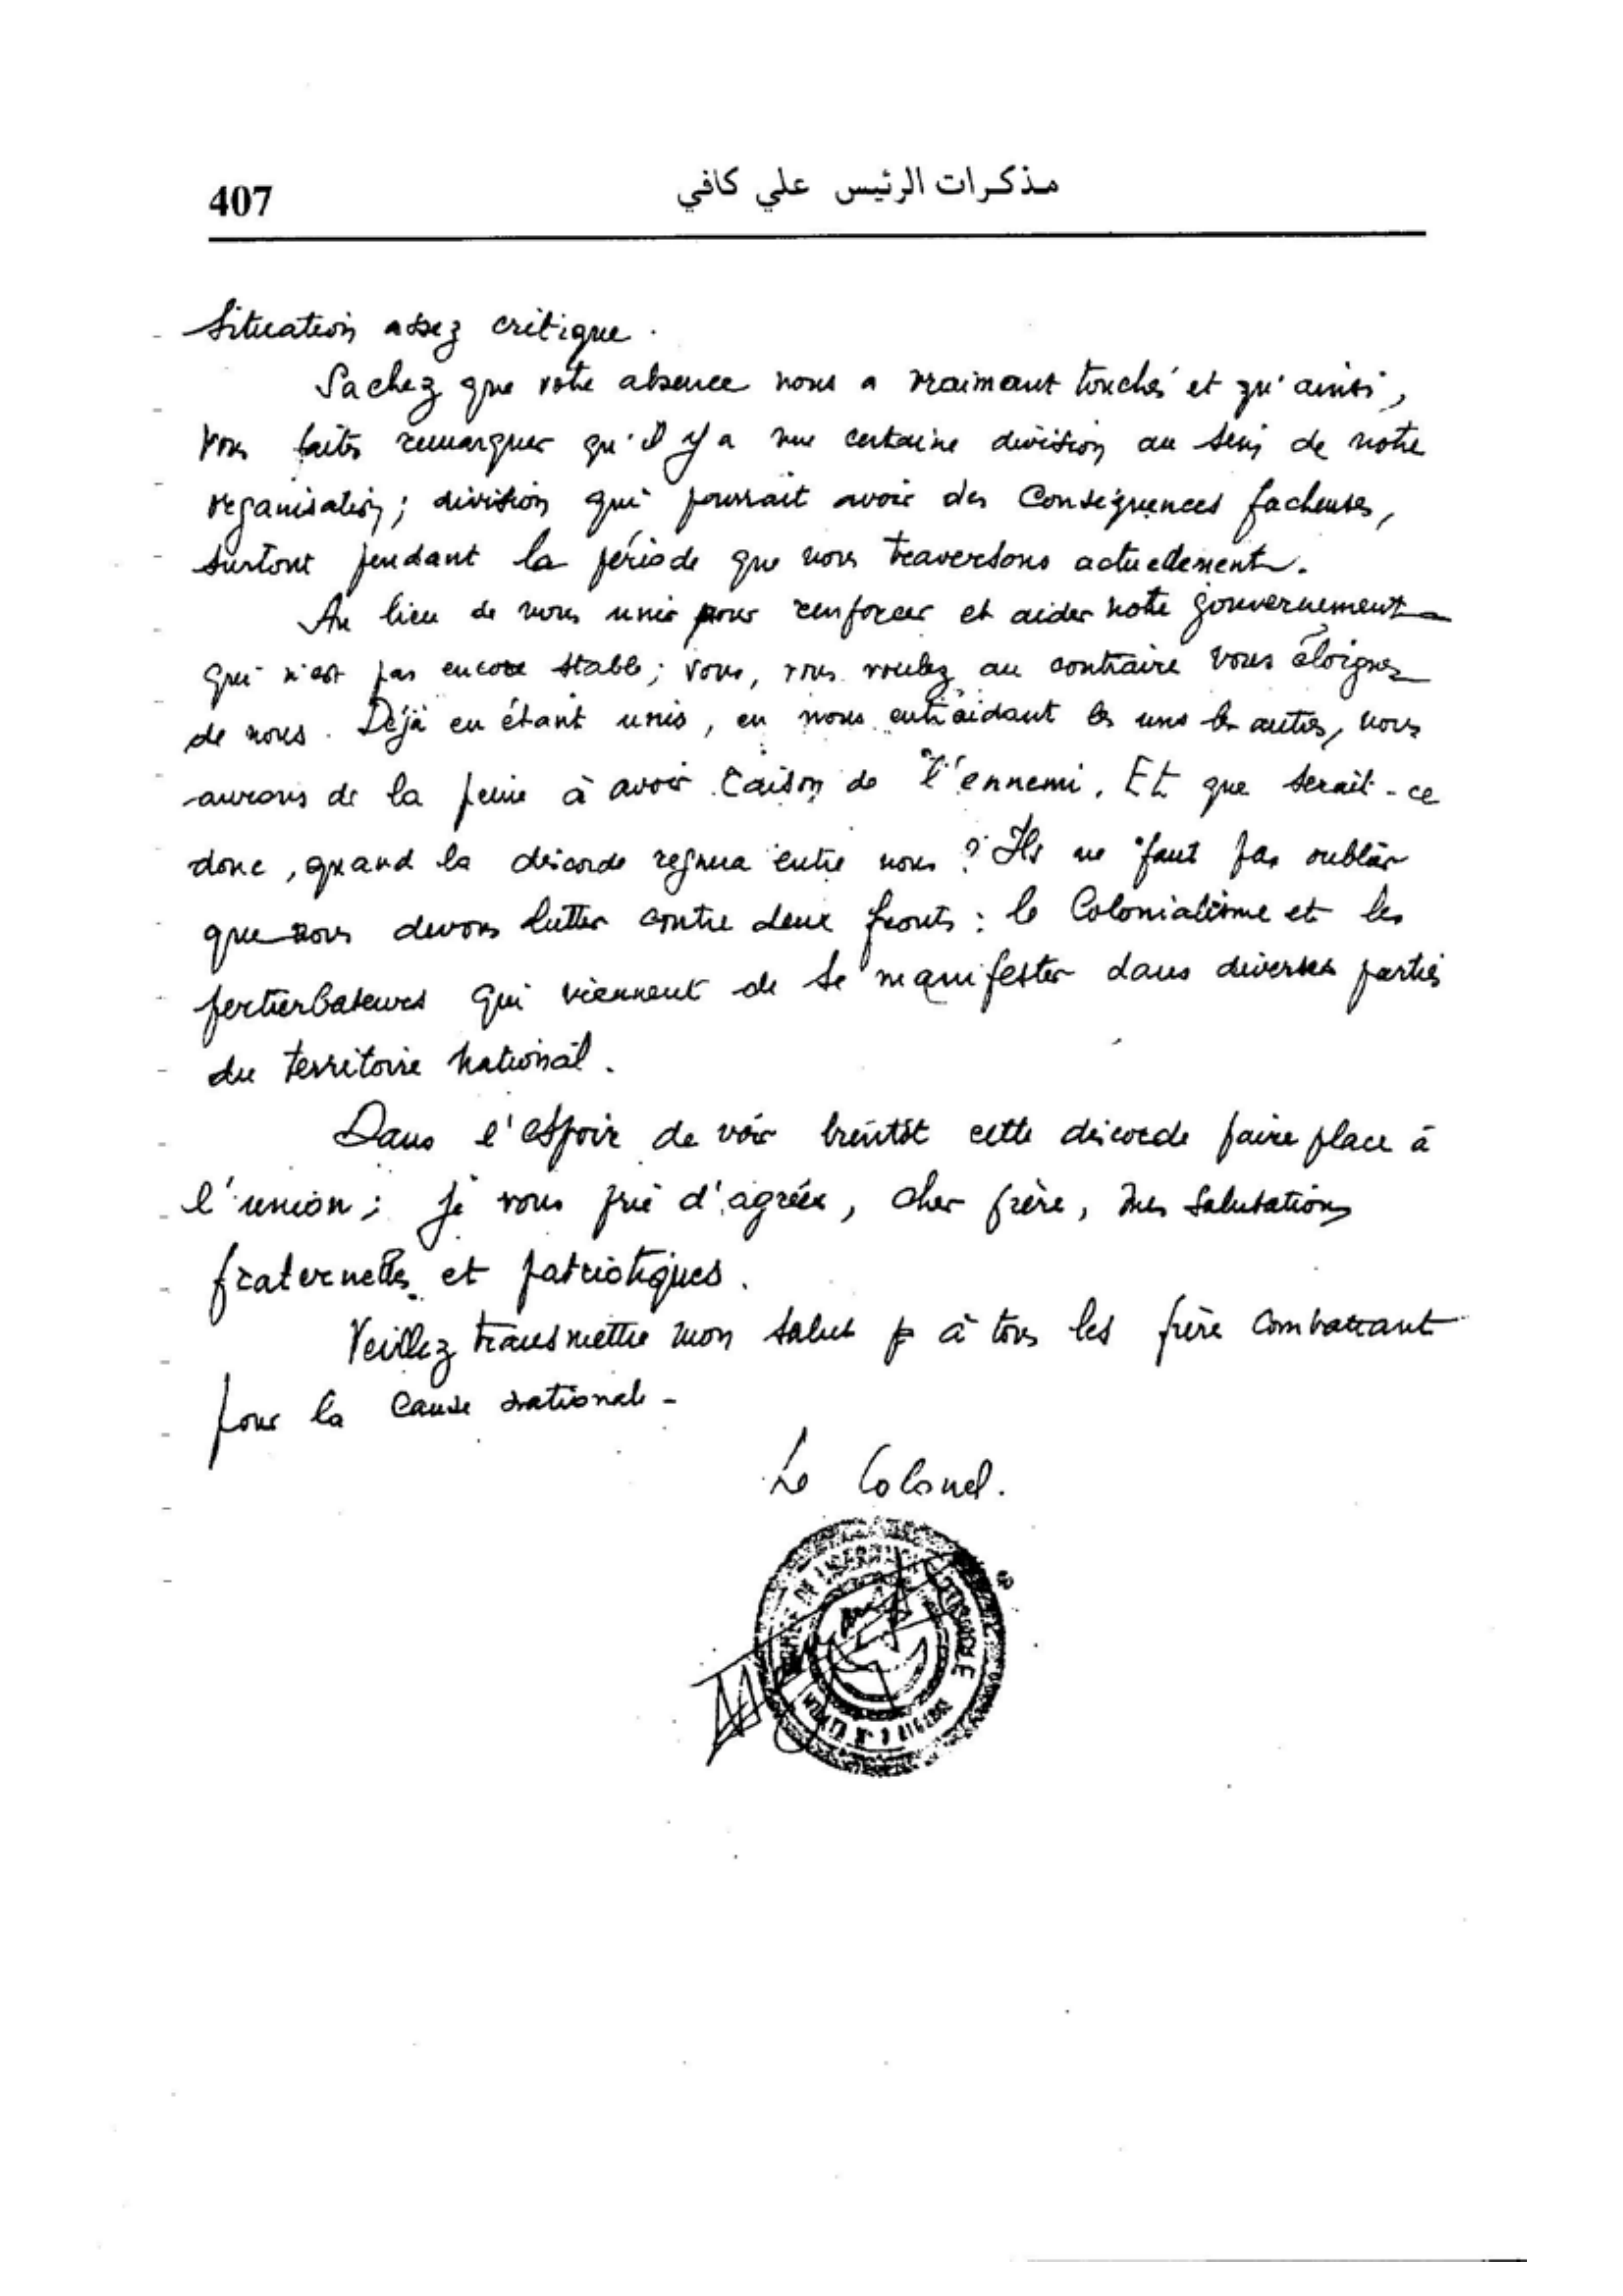 407
مذكرات الرئيس علي كافي
situation assez critique.
Sachez que votre absence nous a vraimant touchés et qu'ainsi,
vous faites remarquer qu'il y a une certaine division au sein de notre
organisation; division qui pourrait avoir des conséquences facheuses,
surtout pendant la période que nous traversons actuellement.
Au lieu de nous unir pour renforcer et aider notre gouvernement
qui n'est pas encore stable; vous, vous voulez au contraire vous éloigner
de nous. Déjà en étant unis, en nous entraidant les uns les autres, nous
aurons de la peine à avoir raison de l'ennemi. Et que serait-ce
donc, quand la discorde regnera entre nous? Ils ne faut pas oublier
que nous devons lutter contre deux fronts: le Colonialisme et les
perturbateurs qui viennent de se manifester dans diverses parties
du territoire national.
Dans l'espoir de voir bientôt cette discorde faire place à
l'union; je vous prie d'agréer, cher frère, mes salutations
fraternelles et patriotiques.
Veillez transmettre mon salut à tous les frère combattant
pour la cause nationale -
Le Colonel.